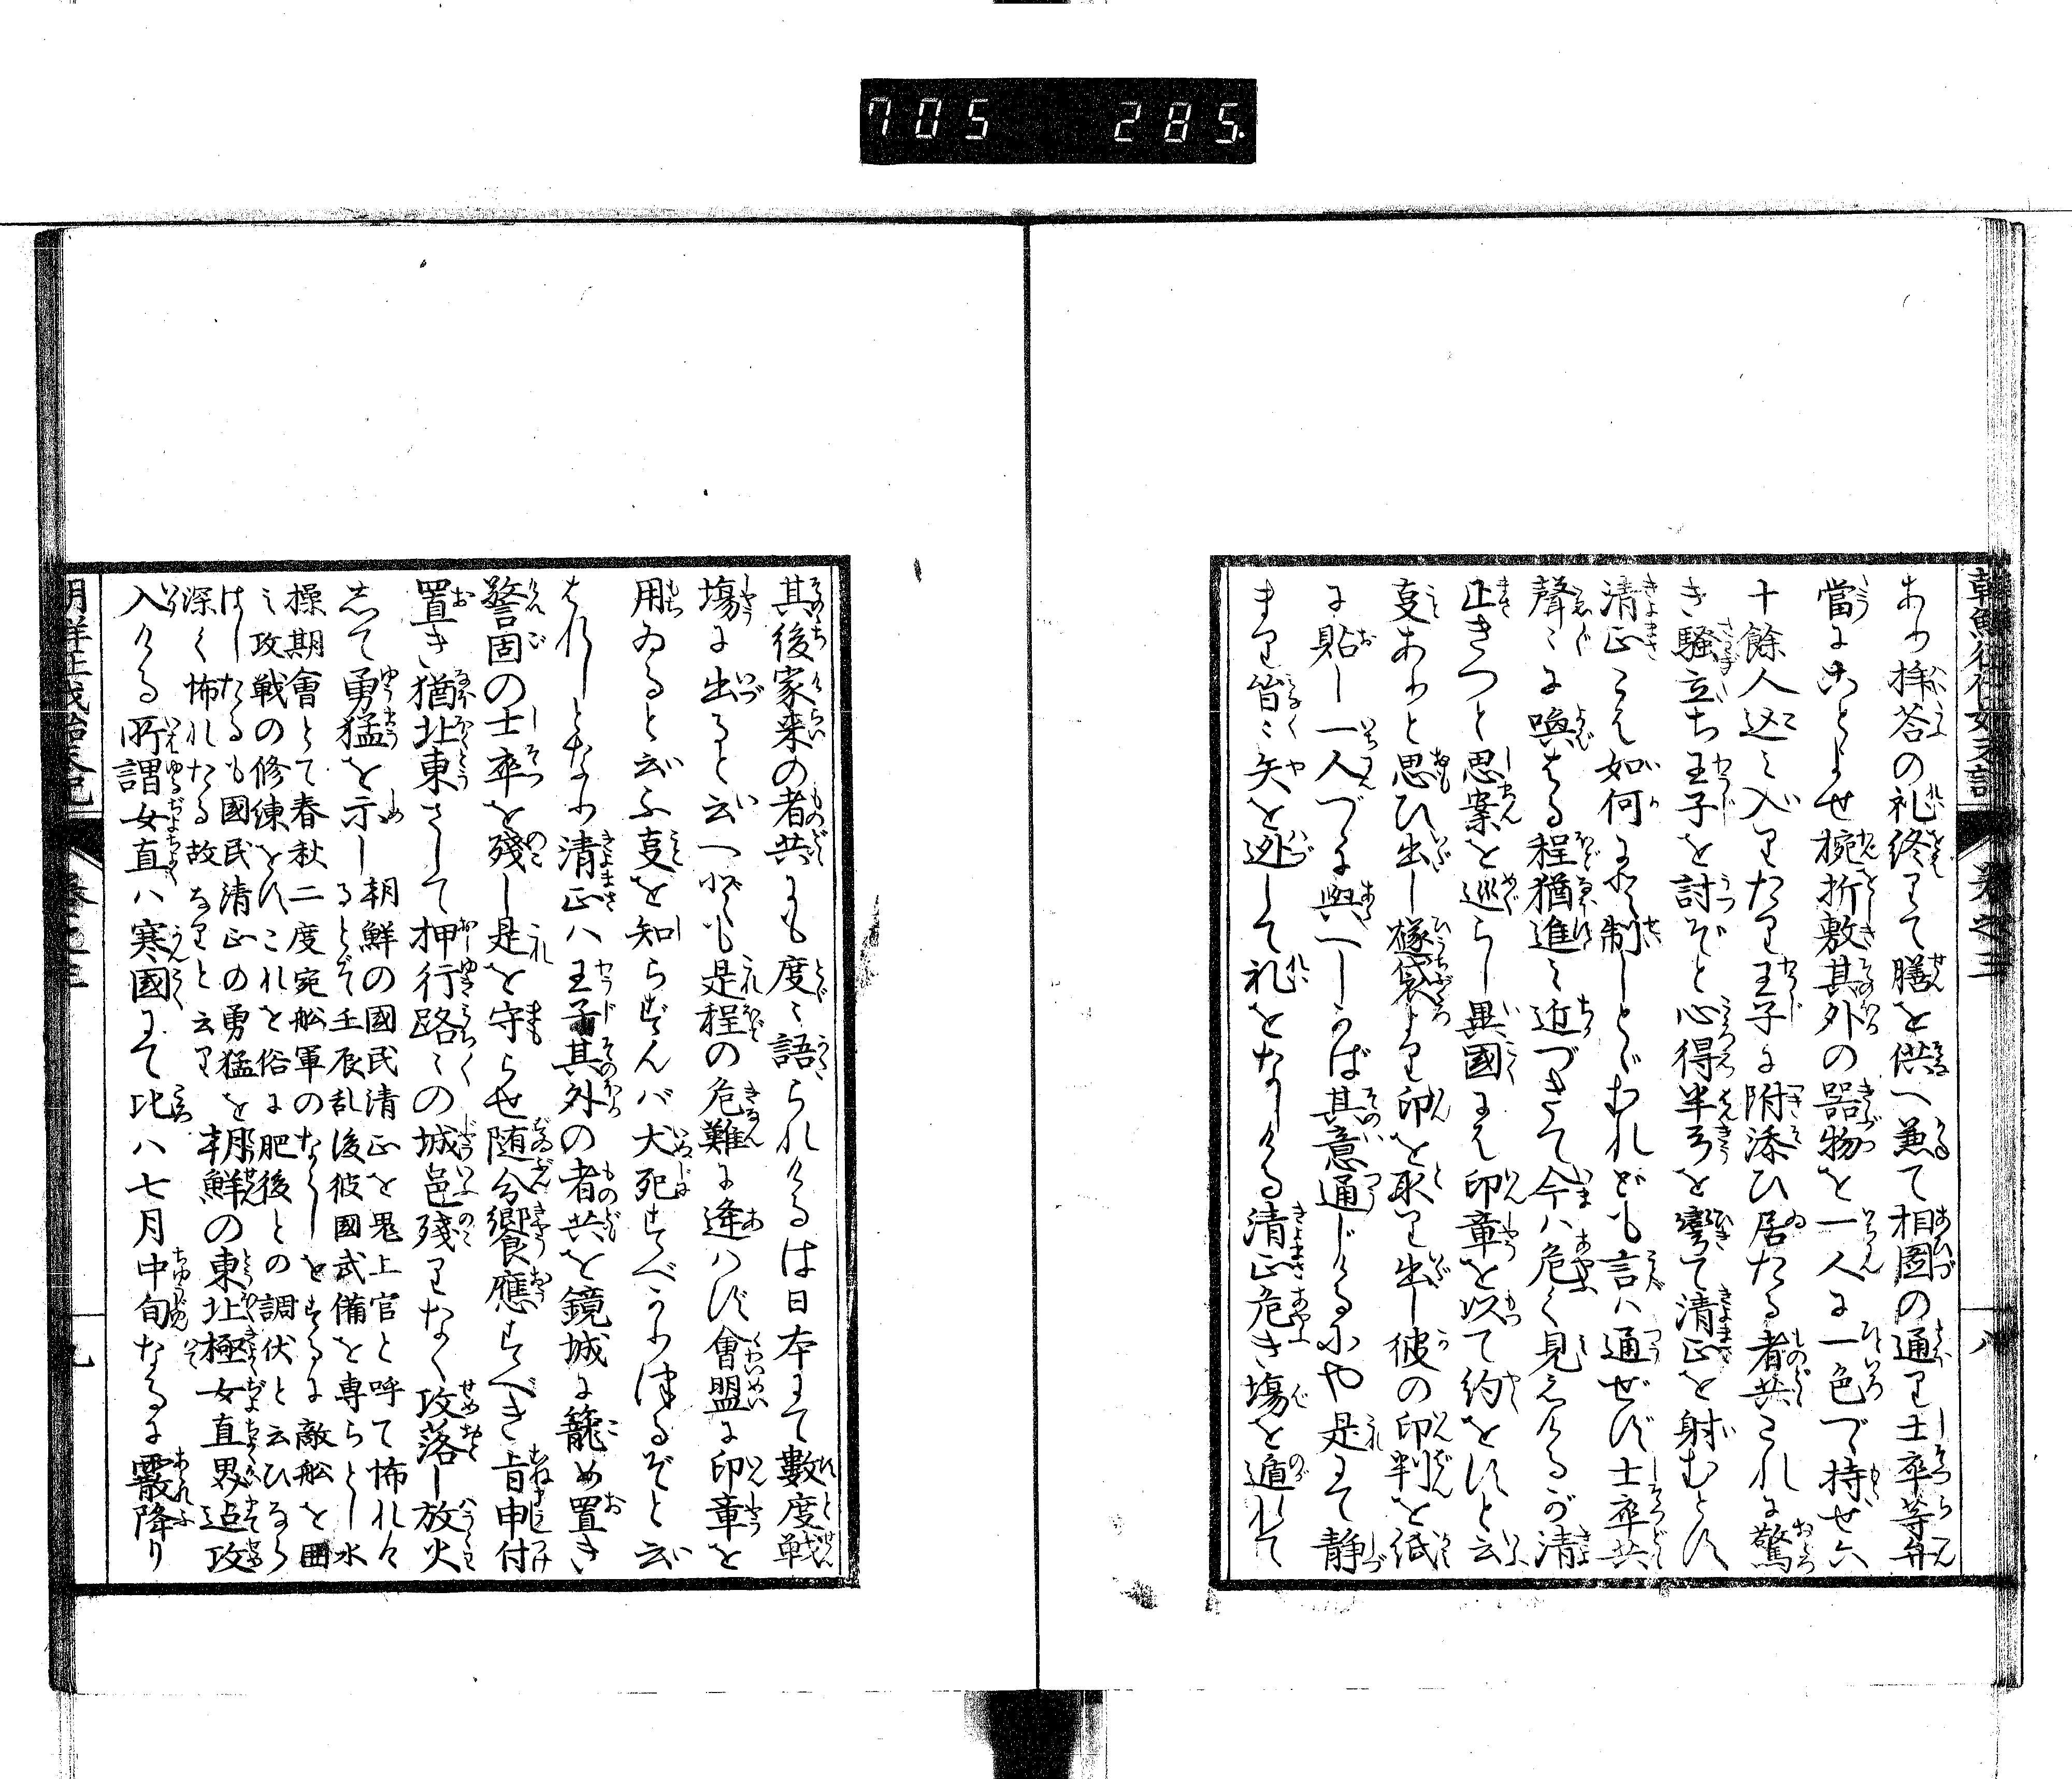 705 285
あり拝答の礼終りて膳を供へ兼て相圖の通り士卒等弁
當よなどよせ椀折敷其外の器物を一人に一色づゝ持せ六
十餘人込ミ入りたり王子に附添ひ居たる者共これに驚
き騒立ち王子を討ぞと心得半弓を彎て清正を射むとす
清正こは如何に是制しとゞむれども言ハ通ぜず士卒共
聲〻に喚はる程猶進ミ近づきて今ハ危く見えけるが清
正きつと思案を巡らし異國には印章を以て約をすと云
事ありと思ひ出し燧袋より印を取り出し彼の印判を紙
に貼し一人づゝに與へしかば其意通じけるにや是にて静
まり皆〻矢を逊して礼をなしける清正危き場を遁れて
八
其後家来の者共にも度〻語られけるは日本にて數度戦
場に出ると云へ共も是程の危難に逢ハず會盟に印章を
用ゐると云ふ事を知らずんバ犬死すべかりけるぞと云
はれしとなり清正ハ王子其外の者共を鏡城に籠め置き
警固の士卒を殘し是を守らせ随分饗應すべき旨申付
置き猶北東さして押行路〻の城邑殘りなく攻落し放火
志て勇猛を示しるとぞ
朝鮮の國民清正を鬼上官と呼て怖れ〻
壬辰乱後彼國武備を専らとし水
操期會とて春秋二度宛舩軍のならしをするに敵舩を囲
ミ攻戦の修練をすこれを俗に肥後との調伏と云ひなら
はしたるも國民清正の勇猛を
深く怖れたる故なりと云り
朝鮮の東北極女直界迄攻
入ける所謂女直ハ寒國にて比ハ七月中旬なるに霰降り
九